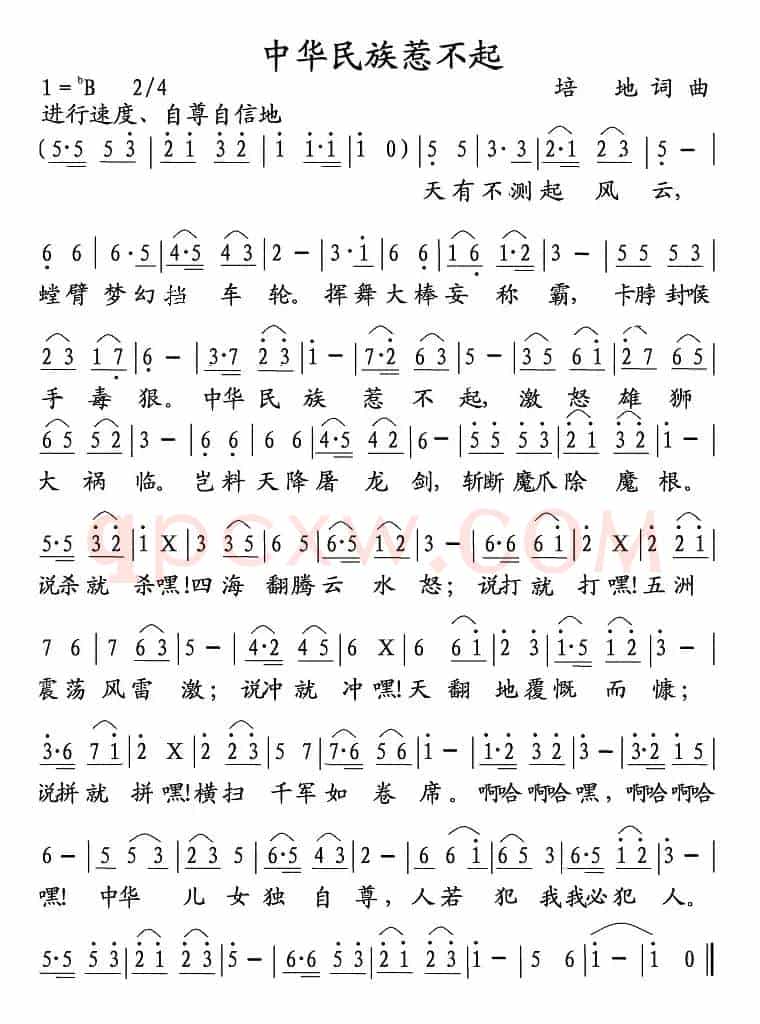 中华民族惹不起
1 = ♭B 2/4 培 地 词 曲
进行速度、自尊自信地
( 5·5 5 3 | 2 1 3 2 | 1 1·1 | 1 0 ) | 5 5 | 3·3 | 2·1 2 3 | 5 – |
天有不测起 风 云,
6 6 | 6·5 | 4·5 4 3 | 2 – | 3·1 | 6 6 | 1 6 1·2 | 3 – | 5 5 5 3 |
螳臂 梦幻挡 车 轮。 挥舞大棒妄 称 霸, 卡脖封喉
2 3 1 7 | 6 – | 3·7 2 3 | 1 – | 7·2 6 3 | 5 – | 3 5 6 1 | 2 7 6 5 |
手 毒 狠。 中华 民 族 惹 不 起, 激 怒 雄 狮
6 5 5 2 | 3 – | 6 6 | 6 6 | 4·5 4 2 | 6 – | 5 5 5 3 | 2 1 3 2 | 1 – |
大 祸 临。 岂料天降屠 龙 剑, 斩断魔爪除 魔 根。
5·5 3 2 | 1 X | 3 3 5 | 6 5 | 6·5 1 2 | 3 – | 6·6 6 1 | 2 X | 2 2 1 |
说杀就 杀嘿!四海 翻腾云 水 怒; 说打就 打嘿!五洲
7 6 | 7 6 3 | 5 – | 4·2 4 5 | 6 X | 6 6 1 | 2 3 | 1·5 1 2 | 3 – |
震荡 风雷 激; 说冲就 冲嘿!天 翻 地覆慨 而 慷;
3·6 7 1 | 2 X | 2 2 3 | 5 7 | 7·6 5 6 | 1 – | 3·2 3·2 | 3 – | 3·2 1 5 |
说拼就 拼嘿!横扫 千军如 卷 席。 啊哈啊哈嘿, 啊哈啊哈
6 – | 5 5 3 | 2 3 | 6·5 4 3 | 2 – | 6 6 1 | 5 3 | 6·5 1 2 | 3 – |
嘿! 中华 儿 女独 自尊, 人若 犯 我我必犯 人。
5·5 5 3 | 2 1 2 3 | 5 – | 6·6 5 3 | 2 1 2 3 | 5 – | 5 6 | 1 – | 1 0 ‖
qpcxw.COM